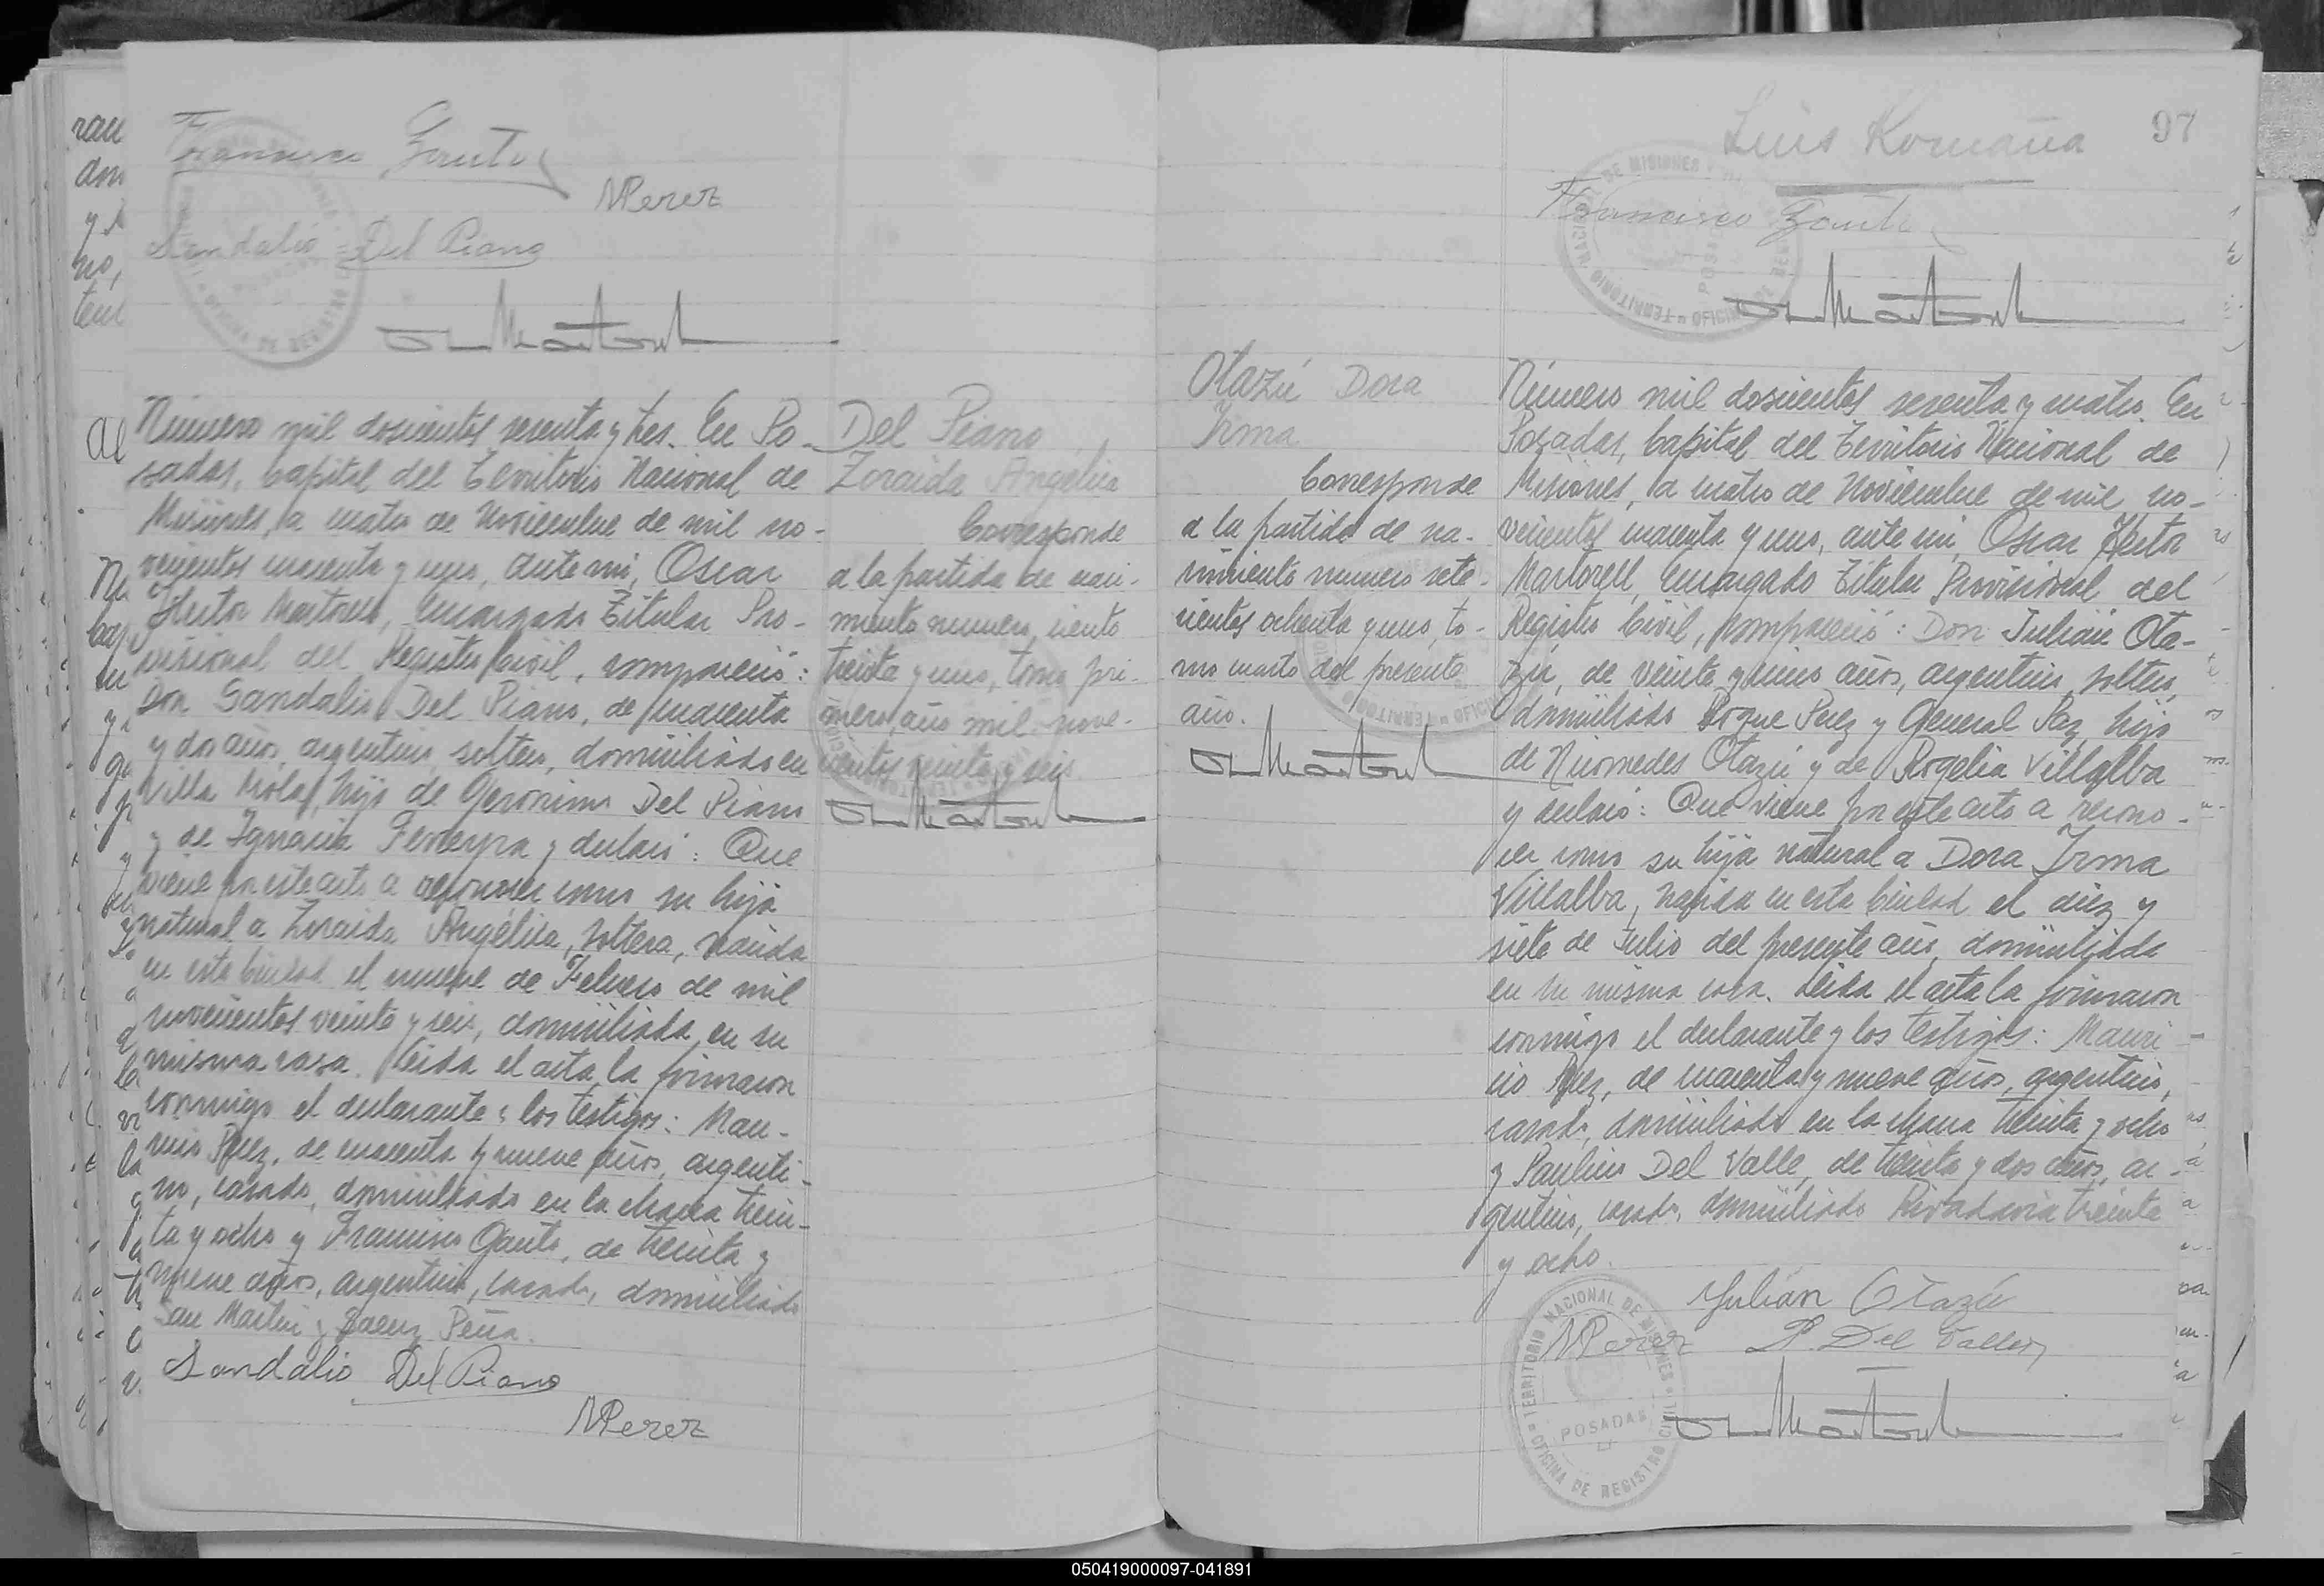 Francisco Gauto
MPerez
Sandalio Del Piano
97
Luis Romaña
Francisco Gauto
Número mil doscientos sesenta y tres. En Po-
sadas, Capital del Territorio Nacional de
Misiones, a cuatro de Noviembre de mil no-
vecientos cuarenta y uno, ante mi, Oscar
Hector Martorell, Encargado Titular Pro-
visional del Registro Civil, compareció:
Don Sandalio Del Piano, de cuarenta
y dos años, argentino, soltero, domiciliado en
Villa Mola, hijo de Geronimo Del Piano
y de Ignacia Ferreyra y declaró: Que
viene por este acto a reconocer como su hija
natural a Zoraida Angélica, soltera, nacida
en esta Ciudad el nueve de Febrero de mil
novecientos veinte y seis, domiciliada en su
misma casa. Leida el acta, la firmaron
conmigo el declarante y los testigos: Mau-
ricio Perez, de cuarenta y nueve años, argenti-
no, casado, domiciliado en la chacra trein-
ta y ocho y Francisco Gauto, de treinta y
nueve años, argentino, casado, domiciliado
San Martin y Saenz Peña.
Sandalio Del Piano
MPerez
Del Piano
Zoraida Angélica
Corresponde
a la partida de naci-
miento numero ciento
treinta y uno, tomo pri-
mero, año mil nove-
cientos veinte y seis
Otazú Dora
Irma
Corresponde
a la partida de na-
cimiento numero sete-
cientos ochenta y uno, to-
mo cuarto del presente
año.
Número mil doscientos sesenta y cuatro. En
Posadas, Capital del Territorio Nacional de
Misiones, a cuatro de Noviembre de mil no-
vecientos cuarenta y uno, ante mi, Oscar Hector
Martorell, Encargado Titular Provisional del
Registro Civil, compareció: Don Julián Ota-
zú, de veinte y cinco años, argentino, soltero,
domiciliado Roque Perez y General Paz, hijo
de Nicomedes Otazú y de Rogelia Villalba
y declaró: Que viene por este acto a recono-
cer como su hija natural a Dora Irma
Villalba, nacida en esta Ciudad el diez y
siete de Julio del presente año, domiciliada
en su misma casa. Leida el acta la firmaron
conmigo el declarante y los testigos: Mauri-
cio Perez, de cuarenta y nueve años, argentino,
casado, domiciliado en la chacra treinta y ocho
y Paulino Del Valle, de treinta y dos años, ar-
gentino, casado, domiciliado Rivadavia treinta
y ocho.
Julián Otazú
MPerez P. Del Valle
TERRITORIO NACIONAL DE MISIONES
OFICINA DE REGISTRO CIVIL
POSADAS
050419000097-041891